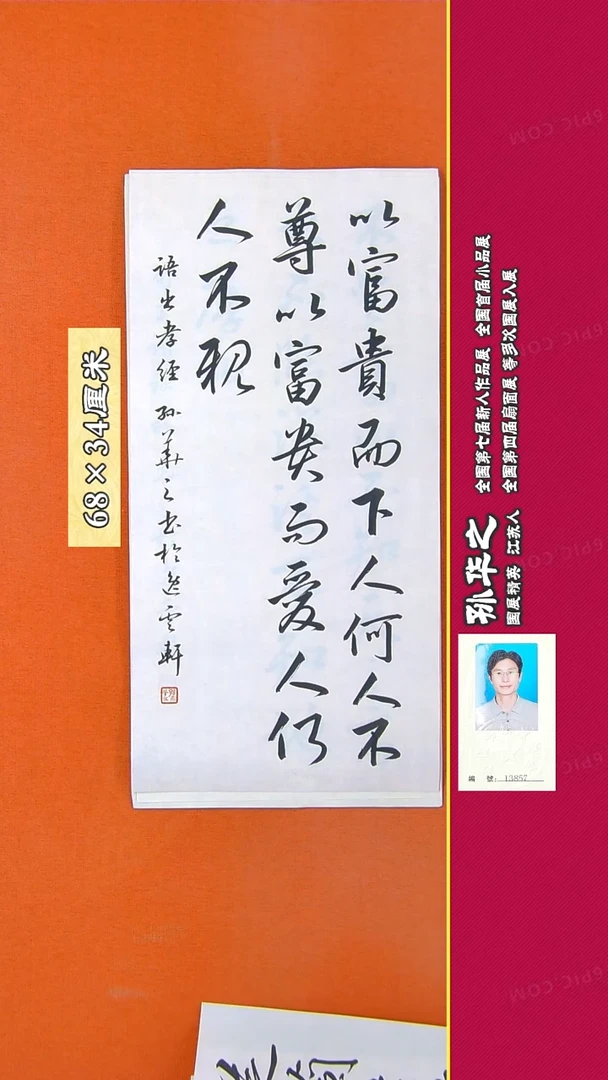 以富貴而下人何人不
尊以富贵而爱人何
人不親
語出孝經 孙華之书於逸雲軒
68×34厘米
孙华之
国展精英 江苏人
全国第七届新人作品展 全国首届小品展
全国第四届扇面展 等多次国展入展
編號:13857
6PIC.COM